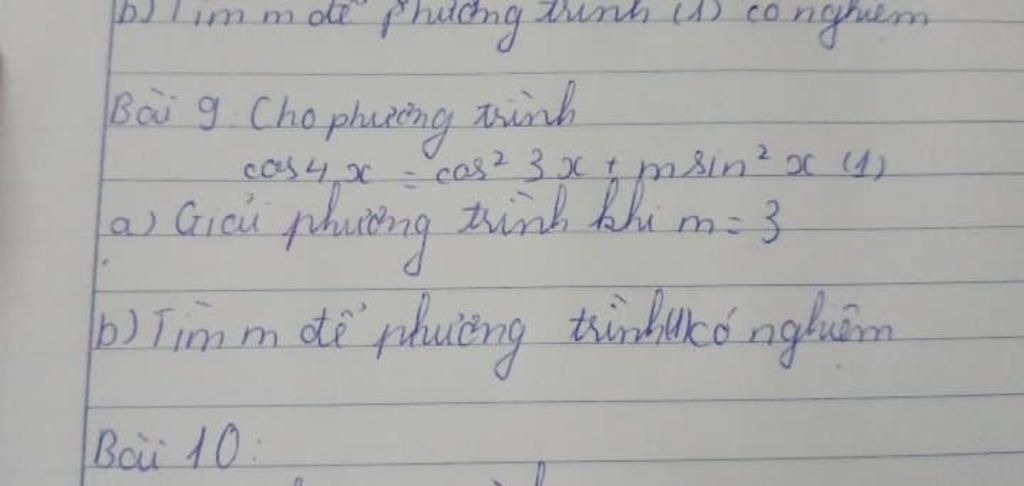 b) Tìm m để phương trình (1) có nghiệm
Bài 9. Cho phương trình
cos4x = cos² 3x + m sin² x (1)
a) Giải phương trình khi m = 3
b) Tìm m để phương trình (1) có nghiệm
Bài 10: